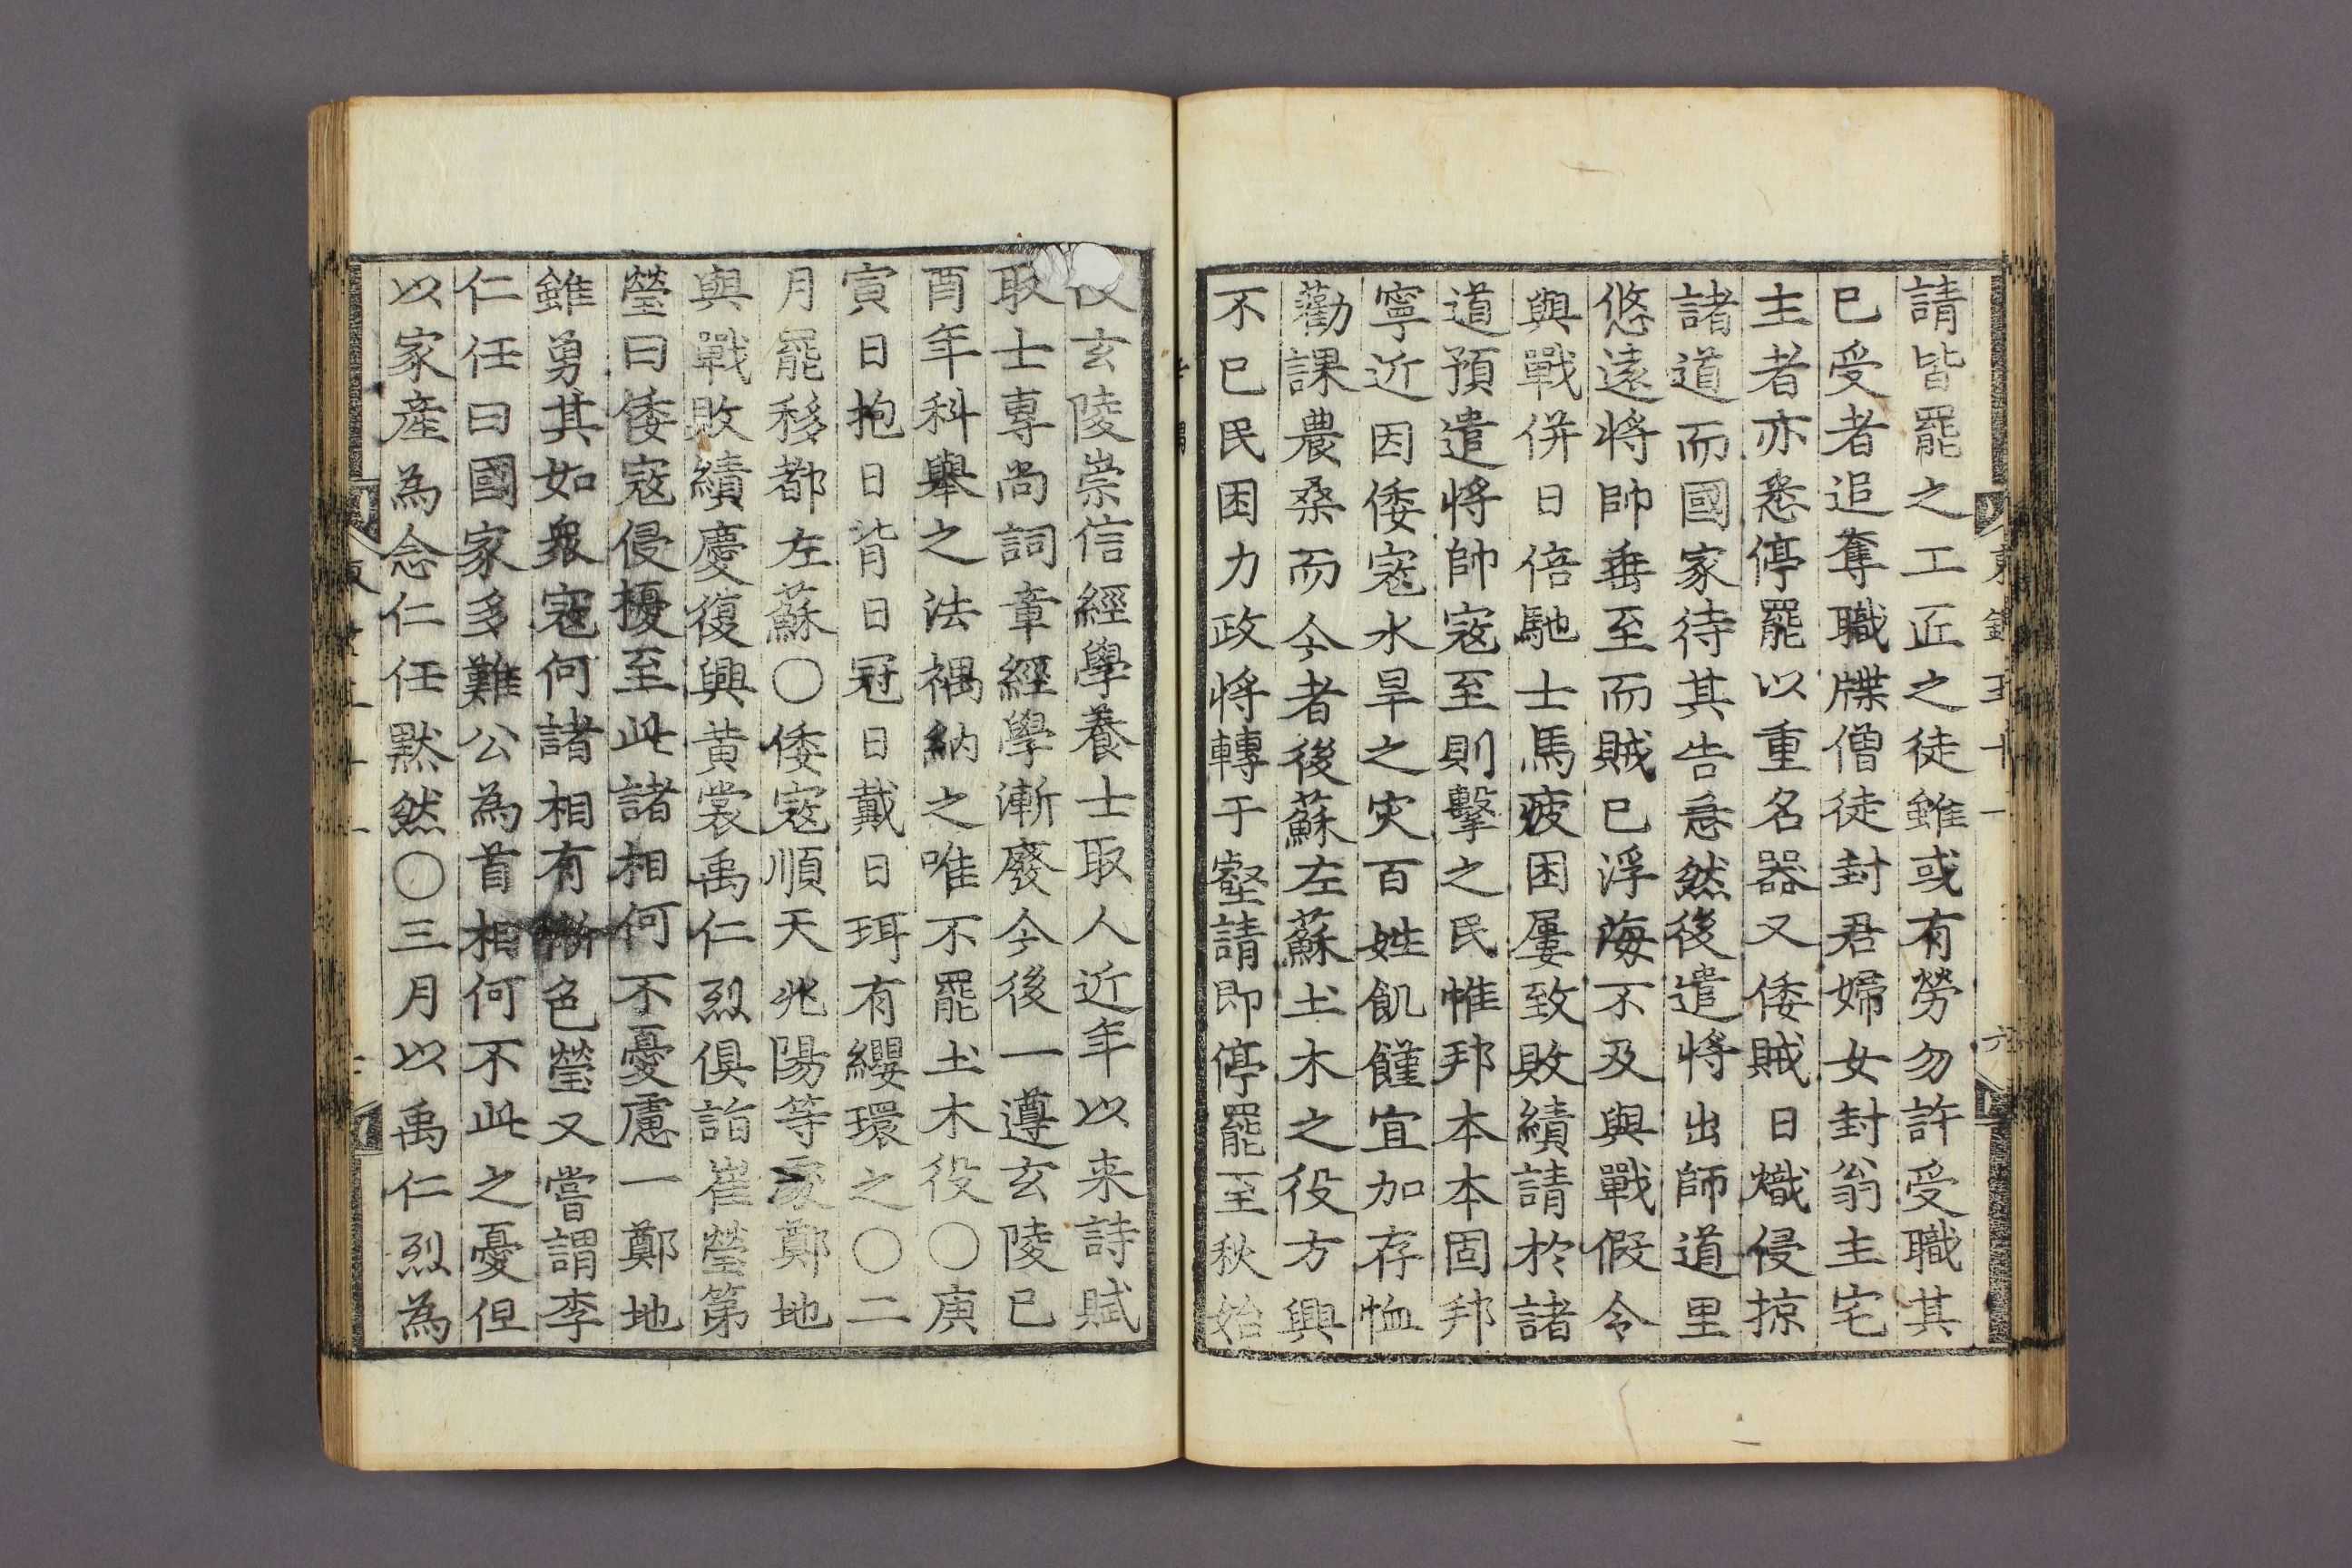 請皆罷之工匠之徒雖或有勞勿許受職其
已受者追奪職牒僧徒封君婦女封翁主宅
主者亦悉停罷以重名器又倭賊日熾侵掠
諸道而國家待其告急然後遣將出師道里
悠遠將帥垂至而賊已浮海不及與戰假令
與戰倂日倍馳士馬疲困屢致敗績請於諸
道預遣將帥寇至則擊之民惟邦本本固邦
寧近因倭寇水旱之灾百姓飢饉宜加存恤
勸課農桑而今者後蘇左蘇土木之役方興
不已民困力政將轉于壑請即停罷至秋始
玄陵崇信經學養士取人近年以来詩賦
取士專尚詞章經學漸廢今後一遵玄陵已
酉年科舉之法禑納之唯不罷土木役〇庚
寅日抱日背日冠日戴日珥有纓環之〇二
月罷移都左蘇〇倭寇順天兆陽等處鄭地
與戰敗績慶復興黃裳禹仁烈俱詣崔瑩第
瑩曰倭寇侵擾至此諸相何不憂慮一鄭地
雖勇其如衆寇何諸相有慚色瑩又嘗謂李
仁任曰國家多難公為首相何不此之憂但
以家産為念仁任默然〇三月以禹仁烈為